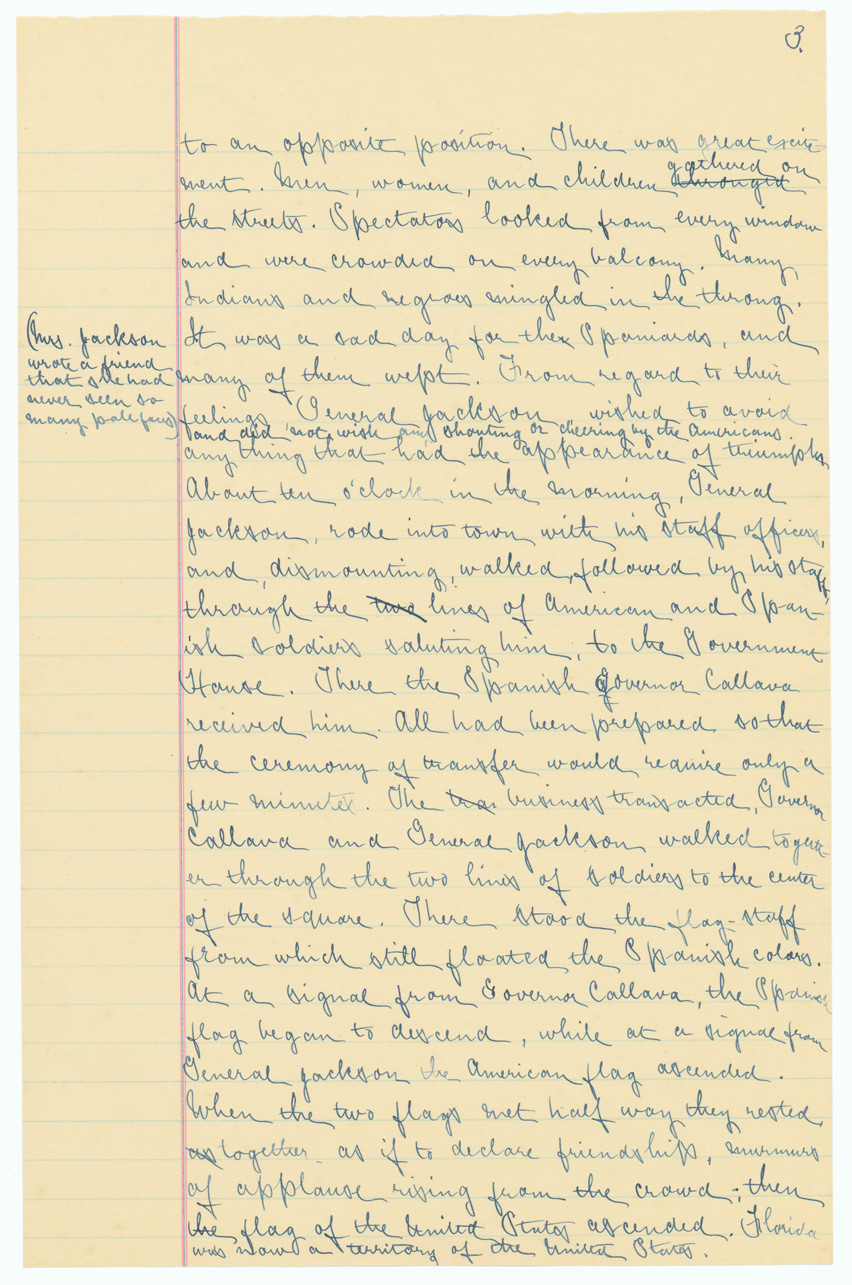 3.
to an opposite position. There was great excite-
ment. Men, women, and children thronged gathered on
the streets. Spectators looked from every window
and were crowded on every balcony. Many
Indians and negroes mingled in the throng.
It was a sad day for the Spaniards, and
many of them wept. From regard to their
feelings General Jackson wished to avoid
and did not wish any shouting or cheering by the Americans.
anything that had the appearance of triumph.
(Mrs. Jackson
wrote a friend
that she had
never seen so
many pale faces)
About ten o'clock in the morning, General
Jackson, rode into town with his staff officers,
and, dismounting, walked, followed by his staff,
through the two lines of American and Span-
ish soldiers saluting him, to the Government
House. There the Spanish Governor Callava
received him. All had been prepared so that
the ceremony of transfer would require only a
few minutes. The tran business transacted, Governor
Callava and General Jackson walked togeth-
er through the two lines of soldiers to the center
of the square. There stood the flag-staff
from which still floated the Spanish colors.
At a signal from Governor Callava, the Spanish
flag began to descend, while at a signal from
General Jackson the American flag ascended.
When the two flags met half way they rested,
as together as if to declare friendship, murmurs
of applause rising from the crowd; then
the flag of the United States ascended. Florida
was now a territory of the United States.